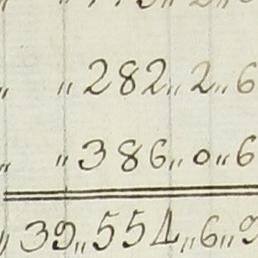 " " 282 " 2 " 6
" " 386 " 0 " 6
" 39 " 554 " 6 " 9